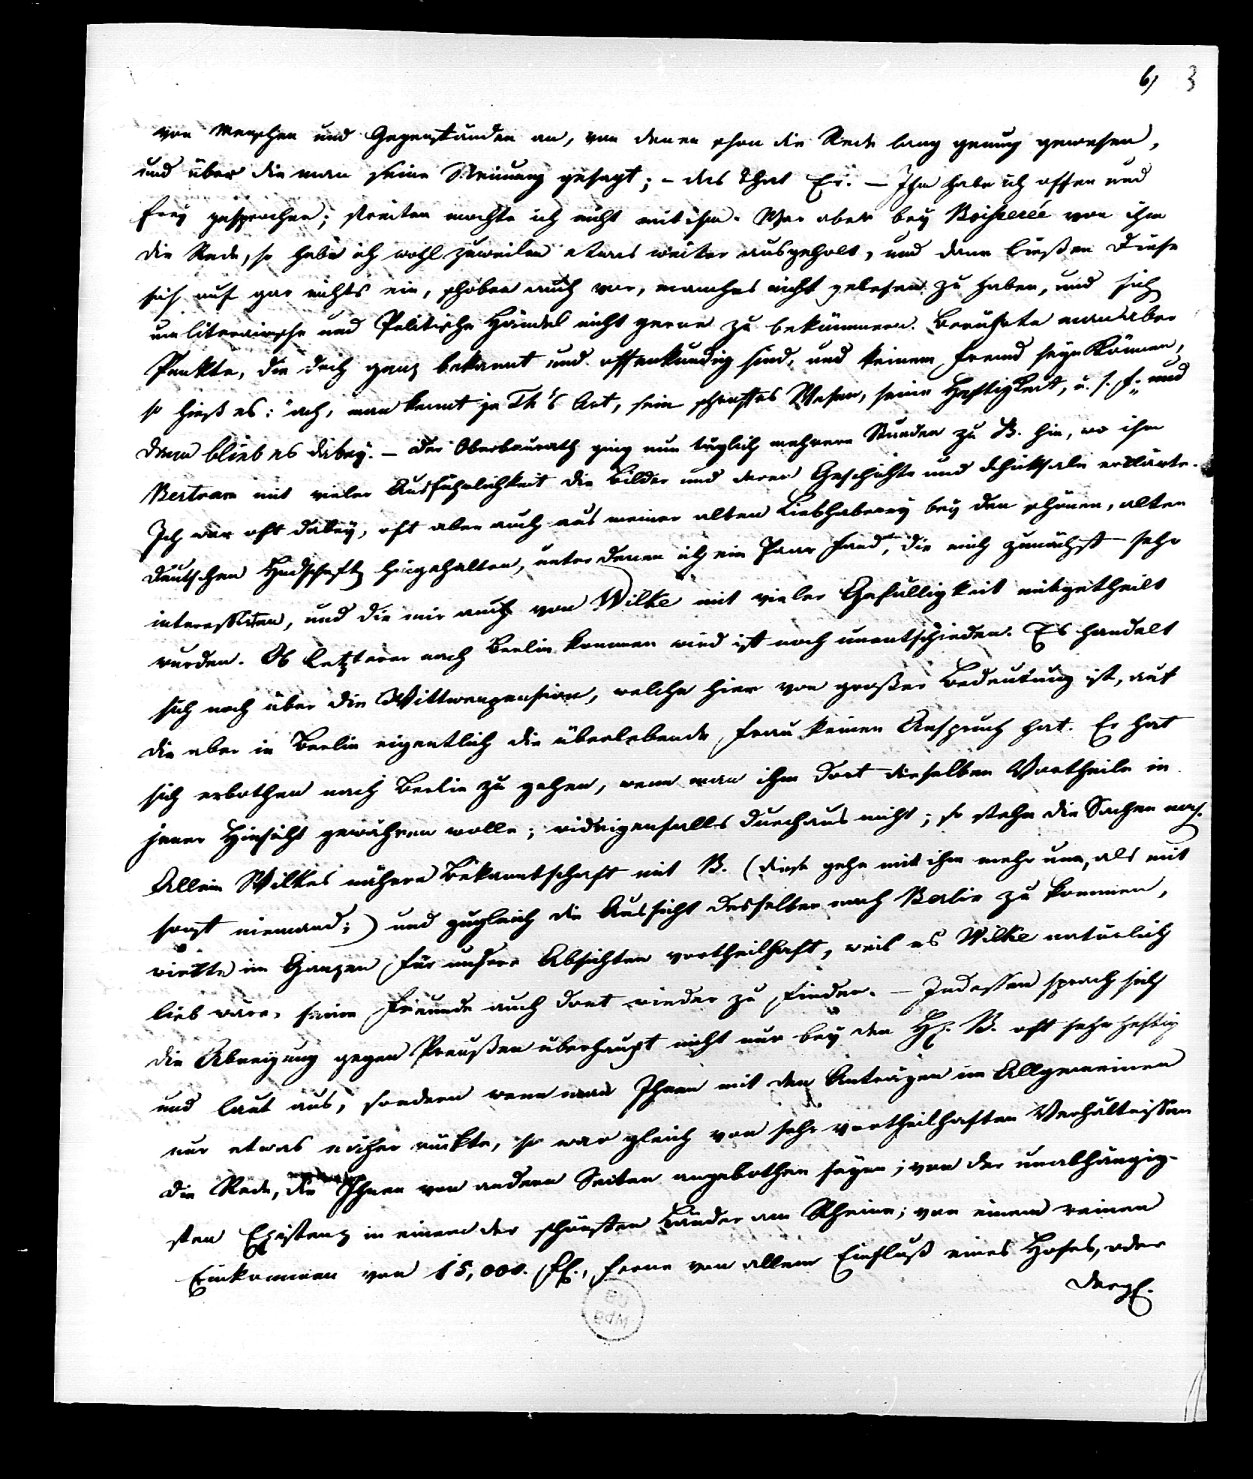 6) 3
von Menschen und Gegenständen an, von denen schon die Rede lang genug gewesen,
und über die man seine Meinung gesagt; – das that Er. – Ihn habe ich offen und
frey gesprochen; streiten mochte ich nicht mit ihm. War aber bey Boisserée von ihm
die Rede, so habe ich wohl zuweilen etwas weiter ausgeholt, und dann ließen Diese
sich auf gar nichts ein, schoben auch vor, manches nicht gelesen zu haben, und sich
um literarische und Politische Händel nicht gerne zu bekümmern. Berührte man aber
Punkte, die doch ganz bekannt und offenkundig sind, und keinem fremd seyn können,
so hieß es: "ach, man kennt ja Th's Art, sein schroffes Wesen, seine Heftigkeit, u. s. f." und
dann blieb es dabey. – Der Oberbaurath ging nun täglich mehrere Stunden zu B. hin, wo ihm
Bertram mit vieler Ausführlichkeit die Bilder und deren Geschichte und Schicksale erklärte.
Ich war oft dabey, oft aber auch aus meiner alten Liebhaberey bey den schönen, alten
deutschen Hndschftn hingehalten, unter denen ich ein Paar fand, die mich zunächst sehr
interessirten, und die mir auch von Wilke mit vieler Gefälligkeit mitgetheilt
wurden. Ob letzterer nach Berlin kommen wird ist noch unentschieden. Es handelt
sich noch über die Wittwenpension, welche hier von großer Bedeutung ist, auf
die aber in Berlin eigentlich die überlebende Frau keinen Anspruch hat. Er hat
sich erbothen nach Berlin zu gehen, wenn man ihm dort dieselben Vortheile in
jener Hinsicht gewähren wolle; widrigenfalls durchaus nicht; so stehn die Sachen noch.
Allein Wilkes nähere Bekanntschaft mit B. (diese gehn mit ihm mehr um, als mit
sonst niemand;) und zugleich die Aussicht desselben nach Berlin zu kommen,
wirkte im Ganzen für unsere Absichten vortheilhaft, weil es Wilke natürlich
lieb wäre, seine Freunde auch dort wieder zu finden. – Indessen sprach sich
die Abneigung gegen Preußen überhaupt nicht nur bey den H. B. oft sehr heftig
und laut aus, sondern wenn man Ihnen mit den Anträgen im Allgemeinen
nur etwas näher rückte, so war gleich von sehr vortheilhaften Verhältnissen
die Rede, die Ihnen von andern Seiten angebothen seyen; von der unabhängig-
sten Existenz in einem der schönsten Länder am Rheine; von einem reinen
Einkommen von 15,000. fl., ferne von allem Einfluß eines Hofes, oder
dergl.